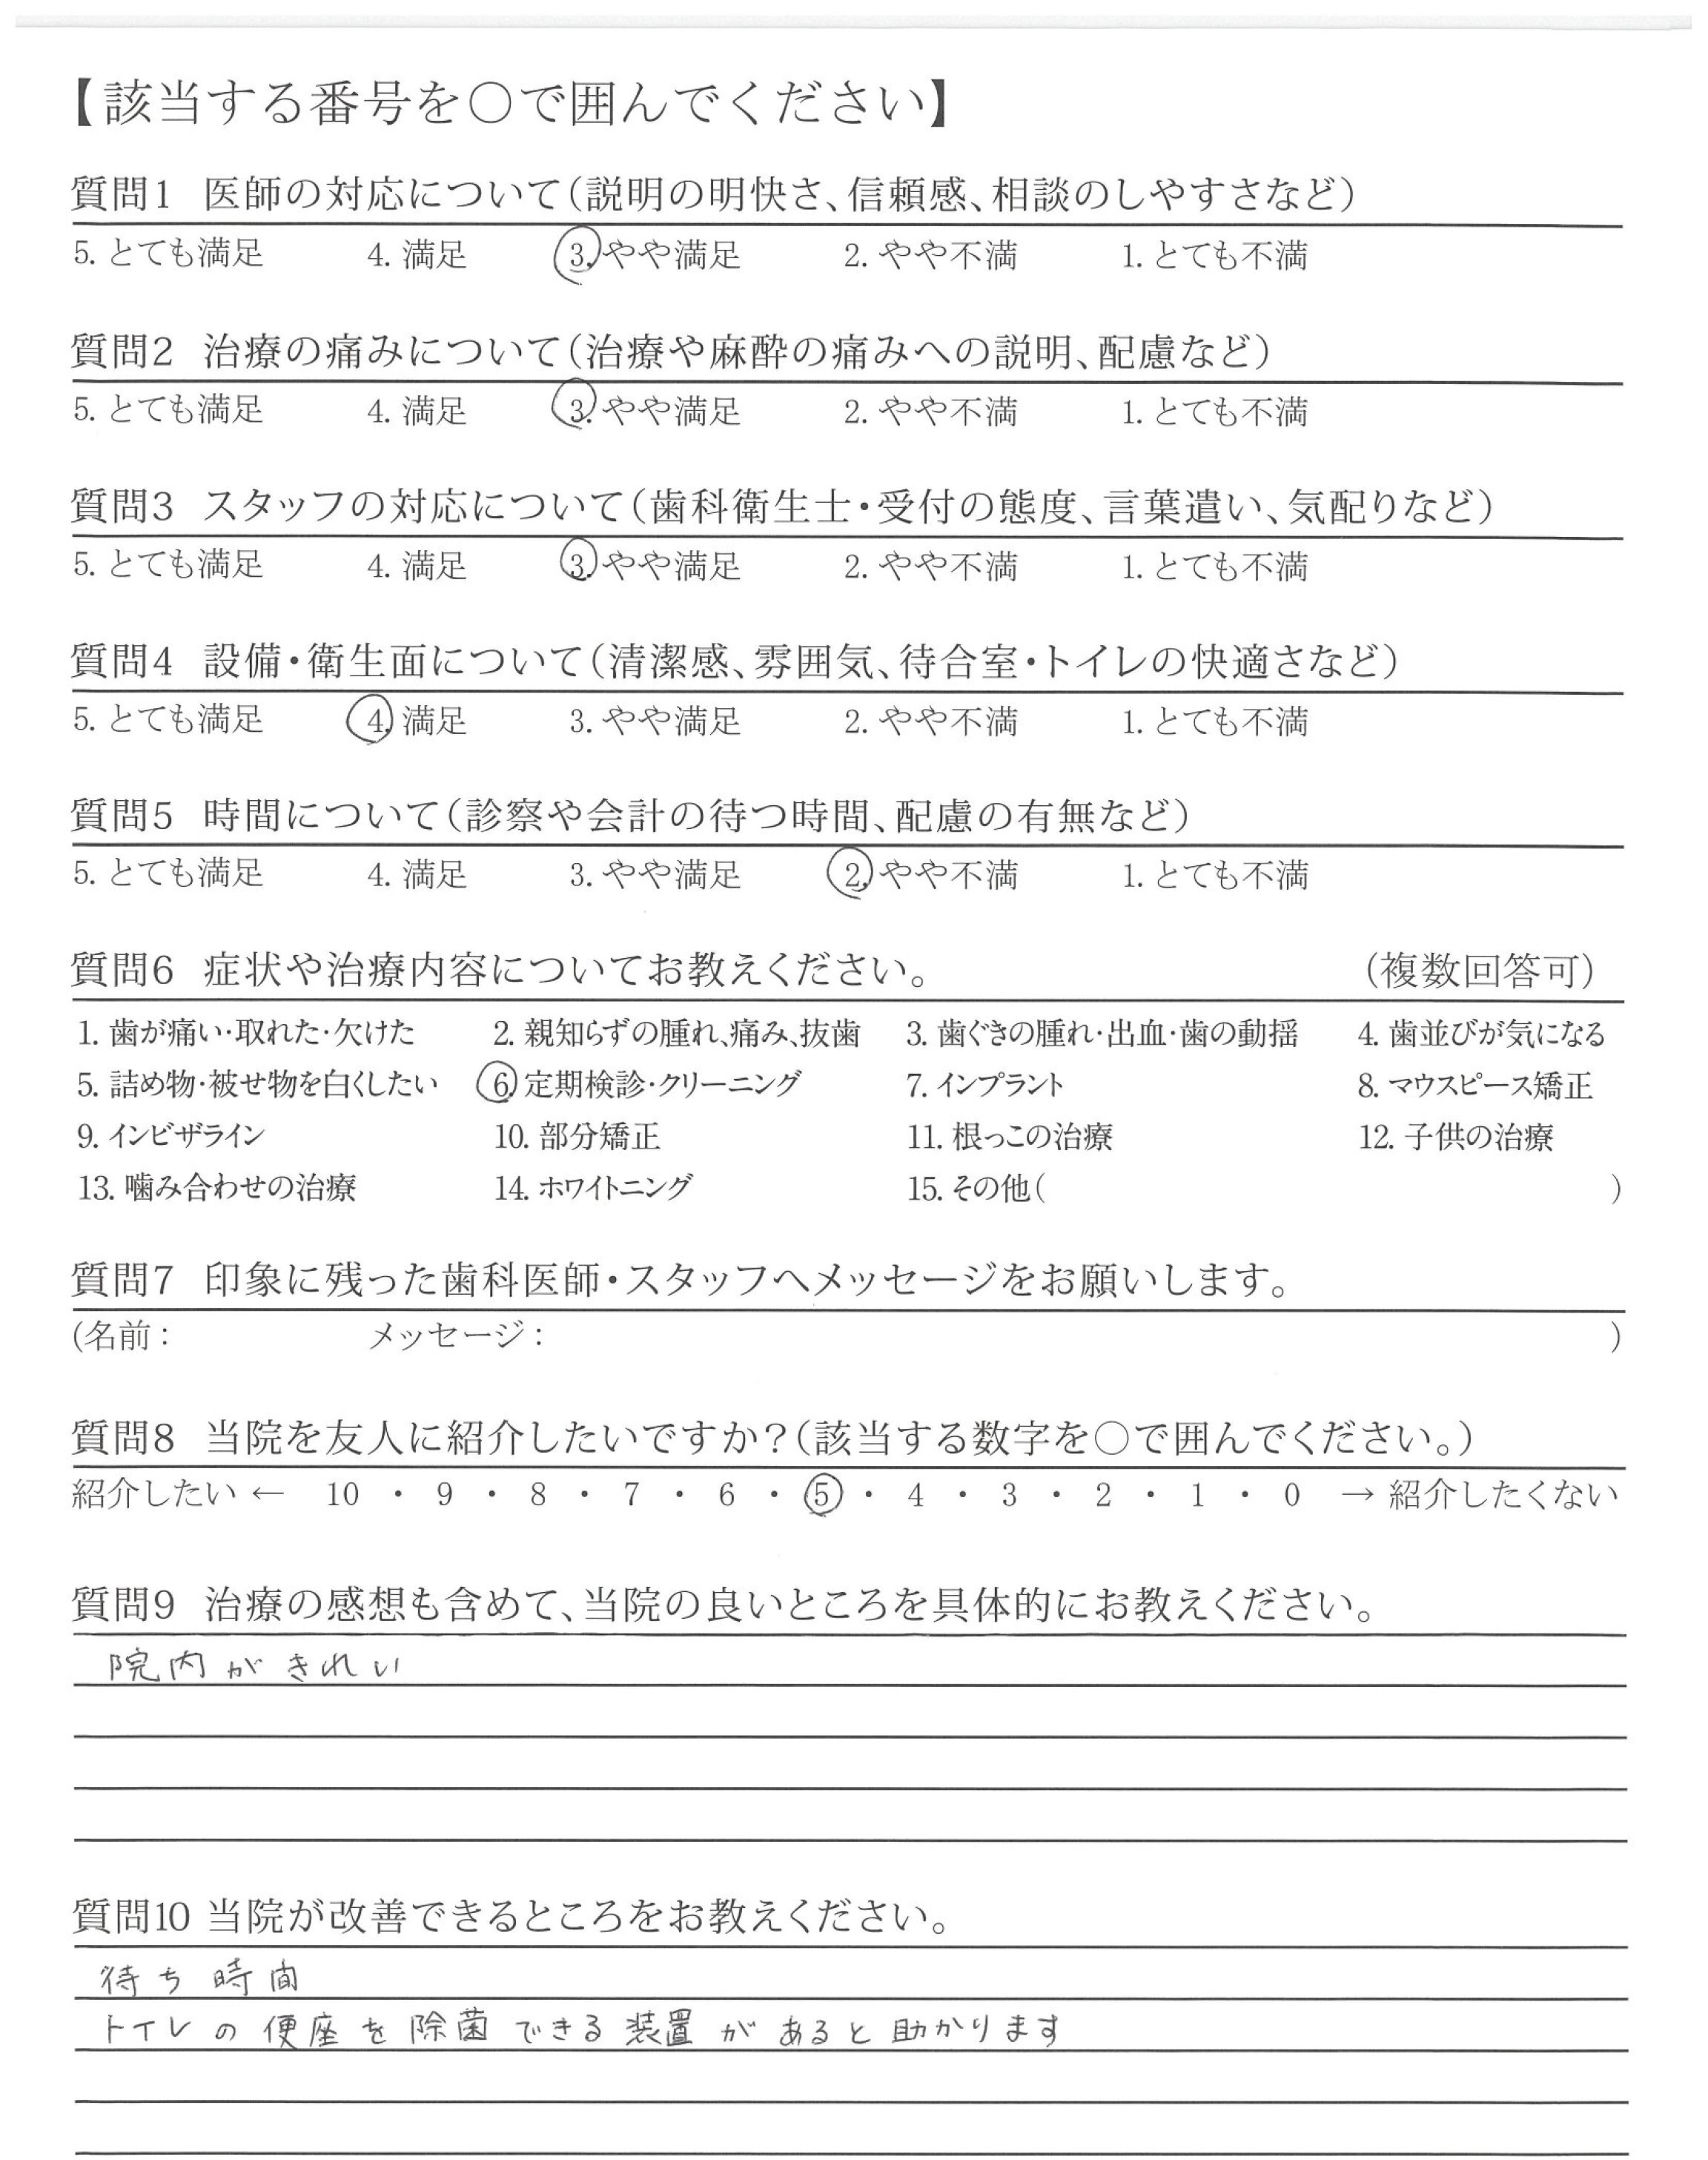 【該当する番号を○で囲んでください】
質問1 医師の対応について(説明の明快さ、信頼感、相談のしやすさなど)
5. とても満足 4. 満足 3. やや満足 2. やや不満 1. とても不満
質問2 治療の痛みについて(治療や麻酔の痛みへの説明、配慮など)
5. とても満足 4. 満足 3. やや満足 2. やや不満 1. とても不満
質問3 スタッフの対応について(歯科衛生士・受付の態度、言葉遣い、気配りなど)
5. とても満足 4. 満足 3. やや満足 2. やや不満 1. とても不満
質問4 設備・衛生面について(清潔感、雰囲気、待合室・トイレの快適さなど)
5. とても満足 4. 満足 3. やや満足 2. やや不満 1. とても不満
質問5 時間について(診察や会計の待つ時間、配慮の有無など)
5. とても満足 4. 満足 3. やや満足 2. やや不満 1. とても不満
質問6 症状や治療内容についてお教えください。 (複数回答可)
1. 歯が痛い・取れた・欠けた 2. 親知らずの腫れ、痛み、抜歯 3. 歯ぐきの腫れ・出血・歯の動揺 4. 歯並びが気になる
5. 詰め物・被せ物を白くしたい 6. 定期検診・クリーニング 7. インプラント 8. マウスピース矯正
9. インビザライン 10. 部分矯正 11. 根っこの治療 12. 子供の治療
13. 噛み合わせの治療 14. ホワイトニング 15. その他( )
質問7 印象に残った歯科医師・スタッフへメッセージをお願いします。
(名前: メッセージ: )
質問8 当院を友人に紹介したいですか?(該当する数字を○で囲んでください。)
紹介したい ← 10 ・ 9 ・ 8 ・ 7 ・ 6 ・ 5 ・ 4 ・ 3 ・ 2 ・ 1 ・ 0 → 紹介したくない
質問9 治療の感想も含めて、当院の良いところを具体的にお教えください。
院内がきれい
質問10 当院が改善できるところをお教えください。
待ち時間
トイレの便座を除菌できる装置があると助かります